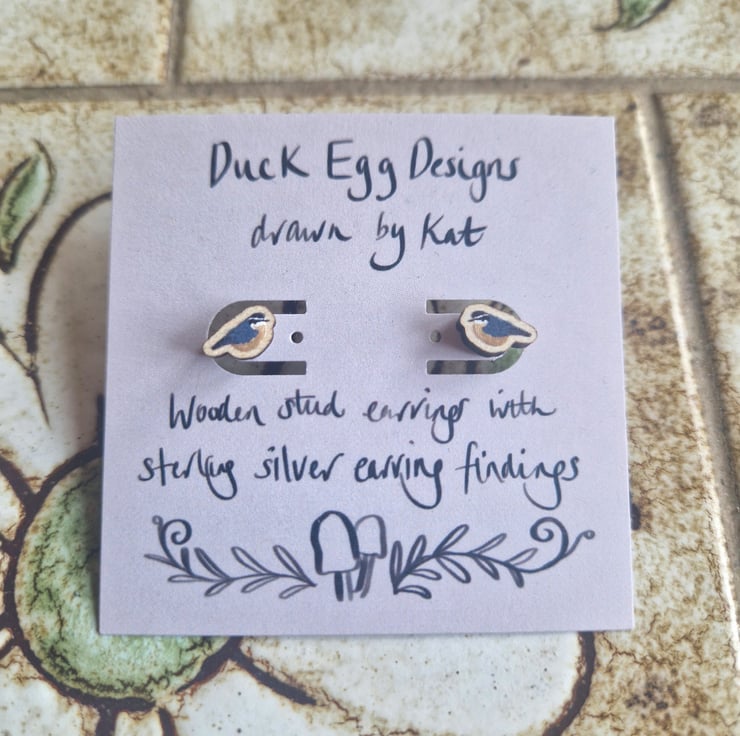 Duck Egg Designs
drawn by Kat
Wooden stud earrings with
sterling silver earring findings